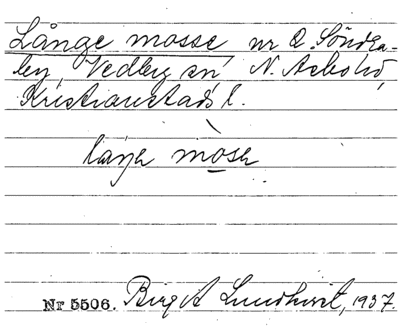 Långe mosse, nr 2 Söndra-
by, Vedby sn, N. Åsbo hd,
Kristianstads l.
låŋə mosə
Nr 5506. Birgit Lundqvist, 1937